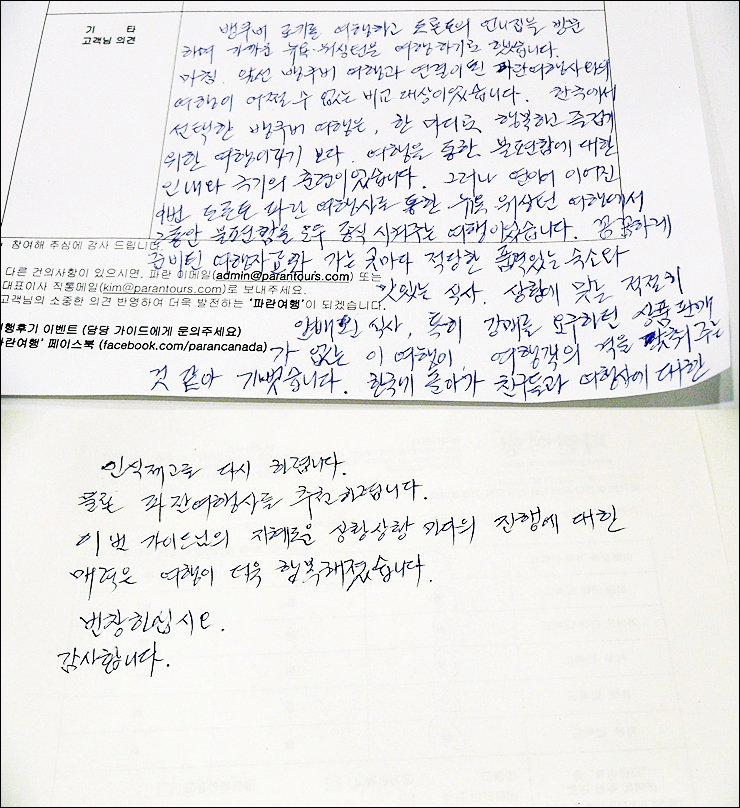 기 타
고객님 의견
뱅쿠버 로키를 여행하고 토론토의 언니집을 방문
하여 가까운 뉴욕 워싱턴을 여행하기로 했습니다.
마침. 앞선 뱅쿠버 여행과 연결이 된 파란여행사와의
여행이 어쩔 수 없는 비교 대상이었습니다. 한국에서
선택한 뱅쿠버 여행은, 한 마디로 행복하고 즐겁게
위한 여행이라기 보다. 여행을 통한 불편함에 대한
인내와 극기의 훈련이었습니다. 그러나 연이어 이어진
이번 토론토 파란 여행사를 통한 뉴욕 워싱턴 여행에서
그동안 불편함을 모두 종식 시켜주는 여행이었습니다. 꼼꼼하게
참여해 주심에 감사 드립니다.
준비된 여행자료와 가는 곳마다 적당한 품격있는 숙소와
다른 건의사항이 있으시면, 파란 이메일(admin@parantours.com) 또는
대표이사 직통메일(kim@parantours.com)로 보내주세요.
맛있는 식사. 상황에 맞는 적절히
고객님의 소중한 의견 반영하여 더욱 발전하는 '파란여행'이 되겠습니다.
안배된 식사, 특히 강매를 요구하던 상품판매
행후기 이벤트 (담당 가이드에게 문의주세요)
파란여행' 페이스북 (facebook.com/parancanada)
가 없는 이 여행이, 여행객의 격을 맞춰주는
것 같아 기뻤습니다. 한국에 돌아가 친구들과 여행사에 대한
인식제고를 다시 하렵니다.
물론 파란여행사를 추천하렵니다.
이번 가이드님의 지혜로운 상황상황 마다의 진행에 대한
매력은 여행이 더욱 행복해졌습니다.
번창하십시오.
감사합니다.